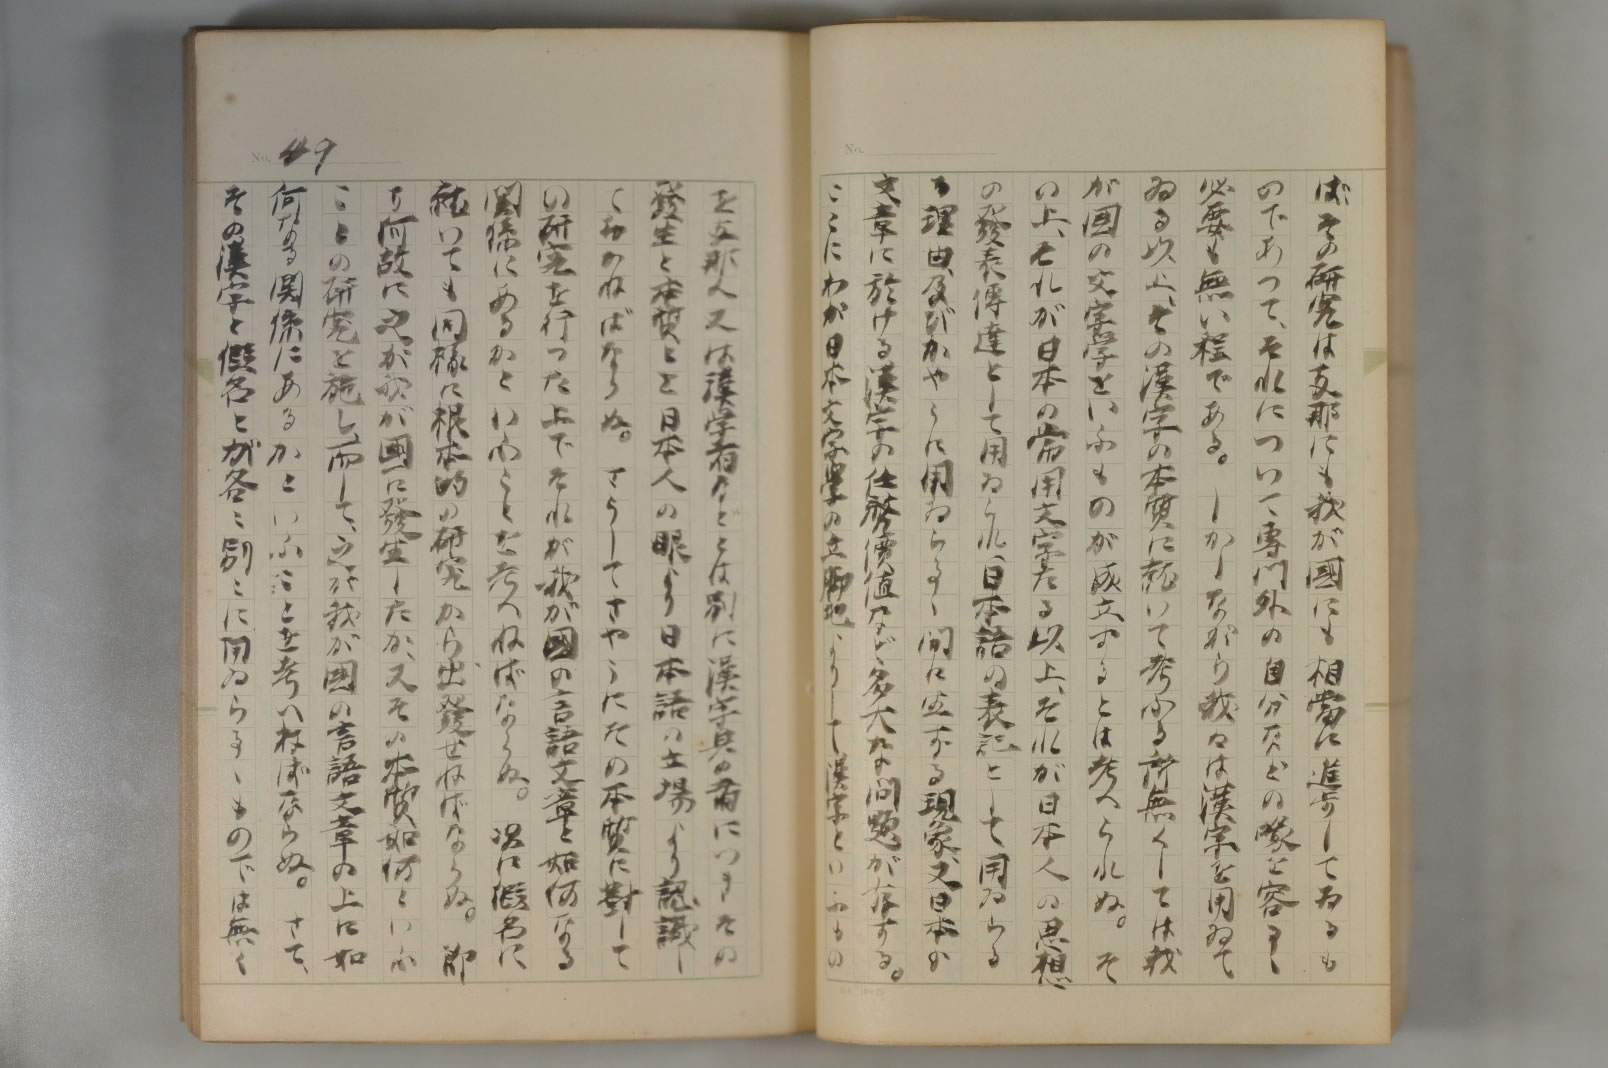 ばその研究は支那にも我が國にも相當に進歩してゐるも
のであつて、それについて専門外の自分などの喙を容るゝ
必要も無い程である。しかしながら我々は漢字を用ゐて
ゐる以上、その漢字の本質に就いて考ふる所無くしては我
が國の文字學といふものが成立するとは考へられぬ。そ
の上、それが日本の常用文字たる以上、それが日本人の思想
の發表傳達として用ゐられ、日本語の表記として用ゐらる
る理由、及びかやうに用ゐらるゝ間に生ずる現象、又日本の
文章に於ける漢字の価値など多大な問題が存する。
ここにわが日本文字學の立脚地よりして漢字といふもの
No. 49
を支那人又は漢学者などとは別に漢字其の者につきその
發生と本質とを日本人の眼より日本語の立場より認識し
ておかねばならぬ。さうしてさやうにその本質に對して
の研究を行つた上でそれが我が國の言語文章と如何なる
関係にあるかといふことを考へねばならぬ。次に假名に
就いても同様に根本的の研究から出發せねばならぬ。即
ち何故に之が我が國に發生したか、又その本質如何といふ
ことの研究を施し、而して、之が我が國の言語文章の上に如
何なる関係にあるかといふことを考へねばならぬ。さて、
その漢字と假名とが各〻別〻に用ゐらるゝものでは無く
No.